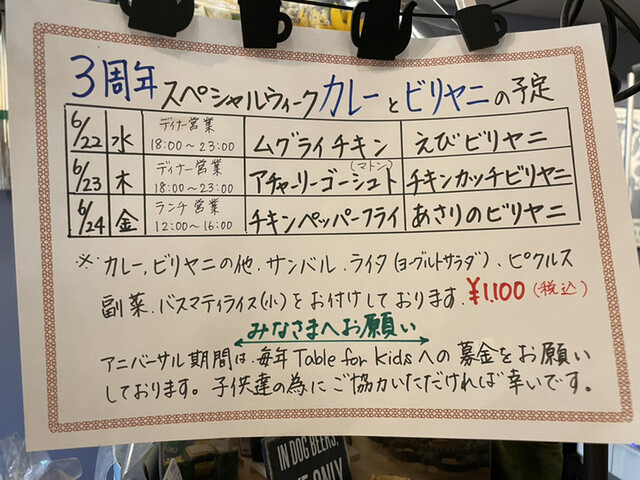 3周年スペシャルウィークカレーとビリヤニの予定
6/22 水 ディナー営業 18:00～23:00 ムグライチキン えびビリヤニ
6/23 木 ディナー営業 18:00～23:00 アチャーリーゴーシュト(マトン) チキンカッチビリヤニ
6/24 金 ランチ営業 12:00～16:00 チキンペッパーフライ あさりのビリヤニ
※ カレー,ビリヤニの他.サンバル.ライタ(ヨーグルトサラダ)、ピクルス
副菜.バスマティライス(小)をお付けしております.¥1.100(税込)
みなさまへお願い
アニバーサル期間は.毎年Table for Kidsへの募金をお願い
しております。子供達の為にご協力いただければ幸いです。
IN DOG BEERS,
ONLY